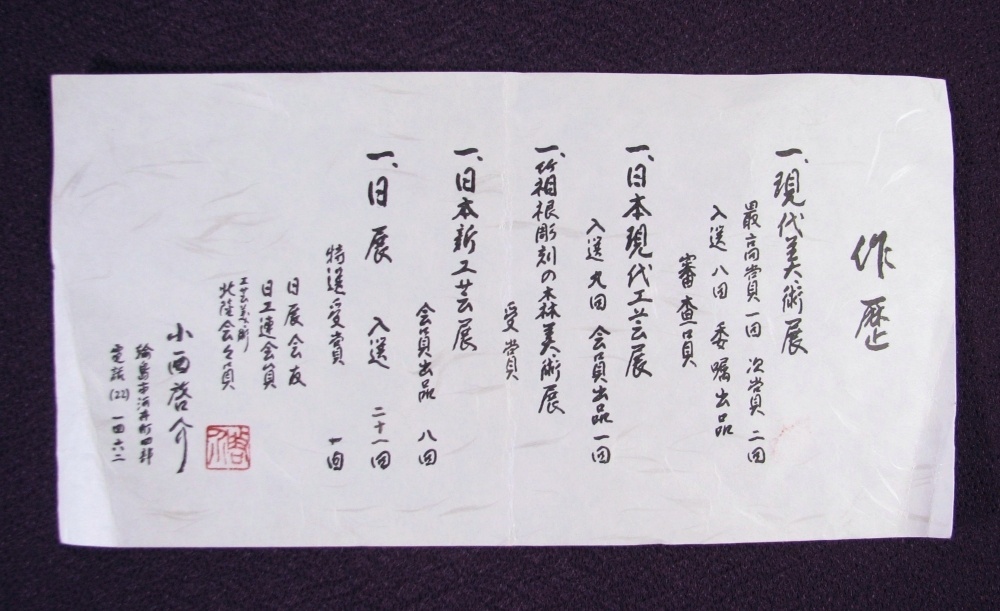 作歴
一、現代美術展
最高賞一回 次賞二回
入選八回 委嘱出品
審査員
一、日本現代工芸展
入選九回 会員出品一回
一、箱根彫刻の森美術展
受賞
一、日本新工芸展
会員出品 八回
一、日展 入選 二十一回
特選受賞 一回
日展会友
日工連会員
工芸美術
北陸会会員
小西啓介
輪島市河井町四部
電話(22)一四六二